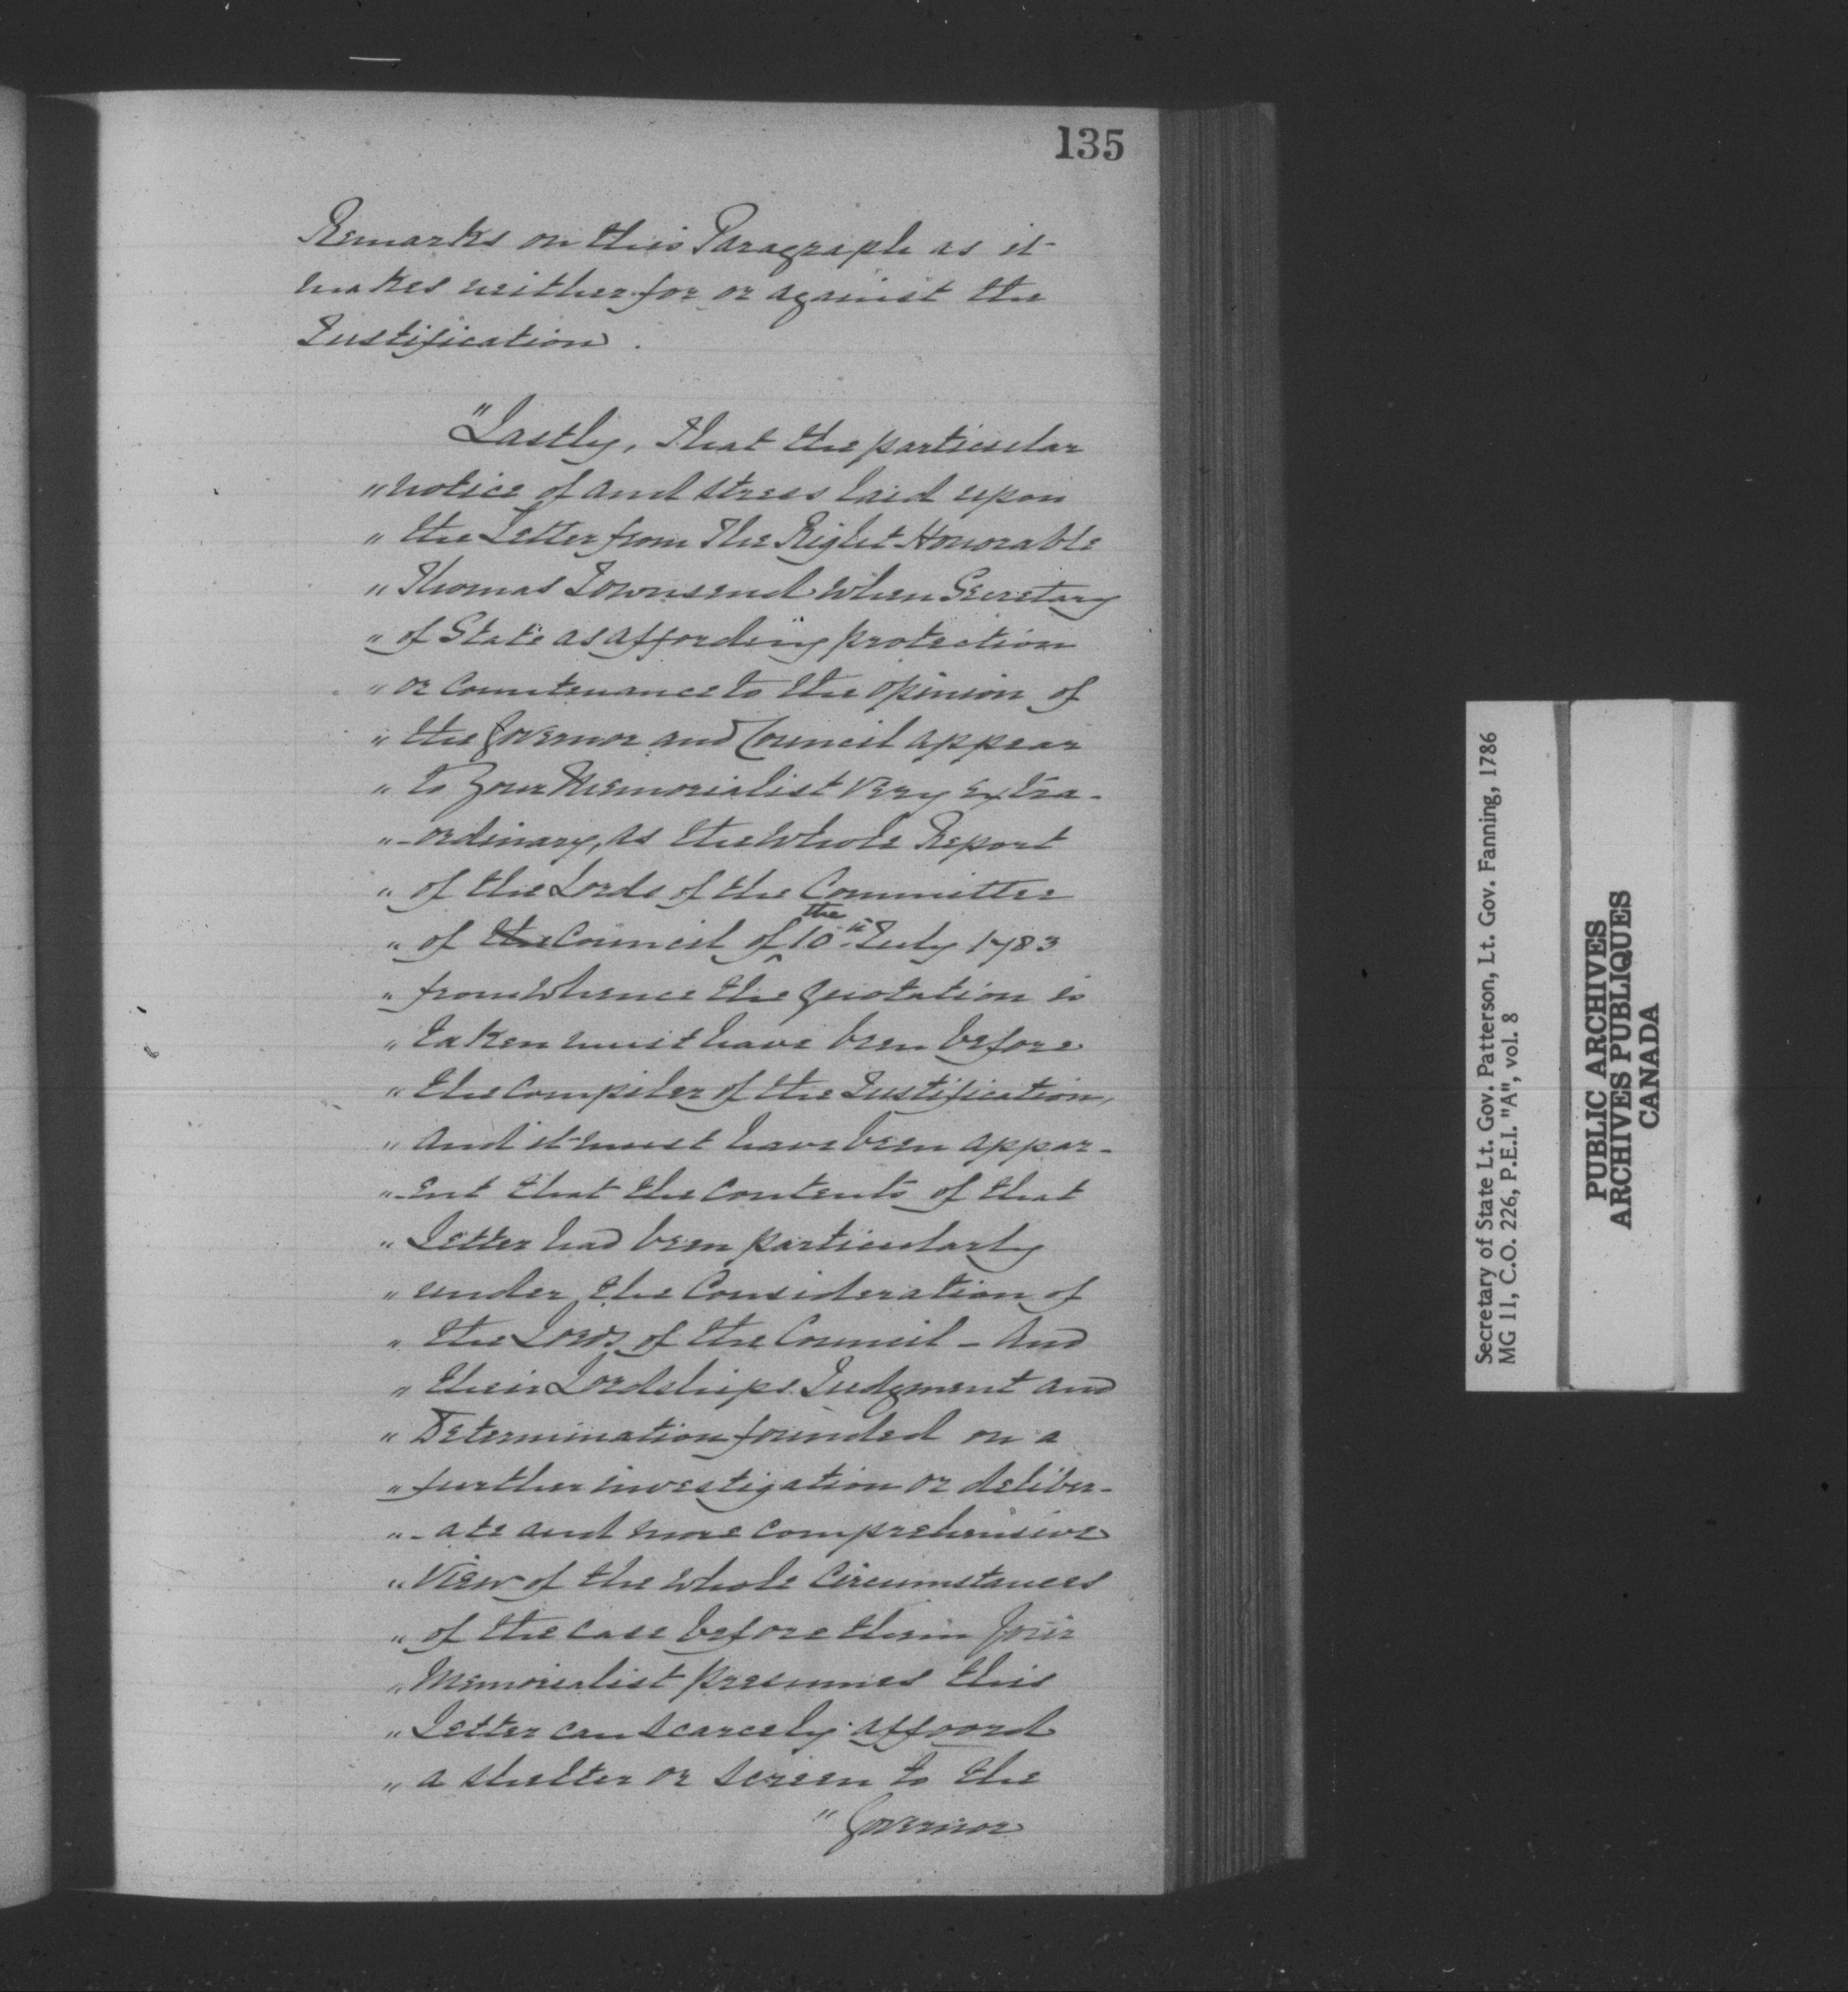 135
Remarks on this Paragraph as it
makes neither for or against the
Justification.
"Lastly, That the particular
" notice of and stress laid upon
" the Letter from The Right Honorable
" Thomas Townsend when Secretary
" of State as affording protection
" or Countenance to the opinion of
" the Governor and Council appear
" to Your Memorialist very extra-
" -ordinary, as the Whole Report
" of the Lords of the Committee
" of the Council of the 10th July 1783
" from whence the quotation is
" taken must have been before
" the Compiler of the Justification,
" and it must have been appar-
" -ent that the Contents of that
" Letter had been particularly
" under the Consideration of
" the Lords of the Council - And
" their Lordships Judgment and
" Determination founded on a
" further investigation or deliber-
" -ate and more comprehensive
" View of the whole Circumstances
" of the case before them Your
" Memorialist presumes this
" Letter can scarcely affoord
" a shelter or screen to the
" Governor
Secretary of State Lt. Gov. Patterson, Lt. Gov. Fanning, 1786
MG 11, C.O. 226, P.E.I. "A", vol. 8
PUBLIC ARCHIVES
ARCHIVES PUBLIQUES
CANADA